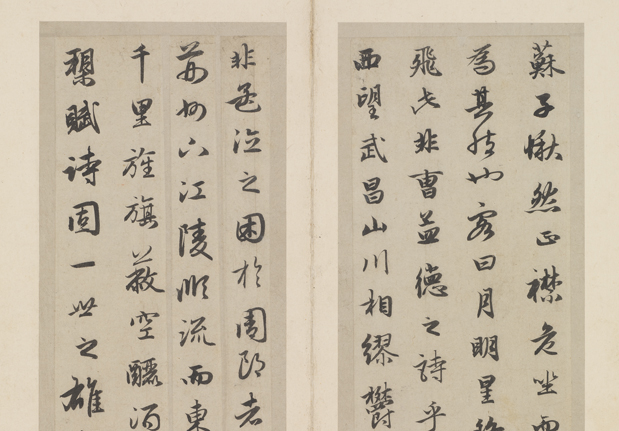 蘇子愀然正襟危坐而
為其然也客曰月明星稀
飛此非曹孟德之詩乎
西望武昌山川相繆鬱
非孟德之困於周郎者
荊州下江陵順流而東
千里旌旗蔽空釃酒
槊賦詩固一世之雄